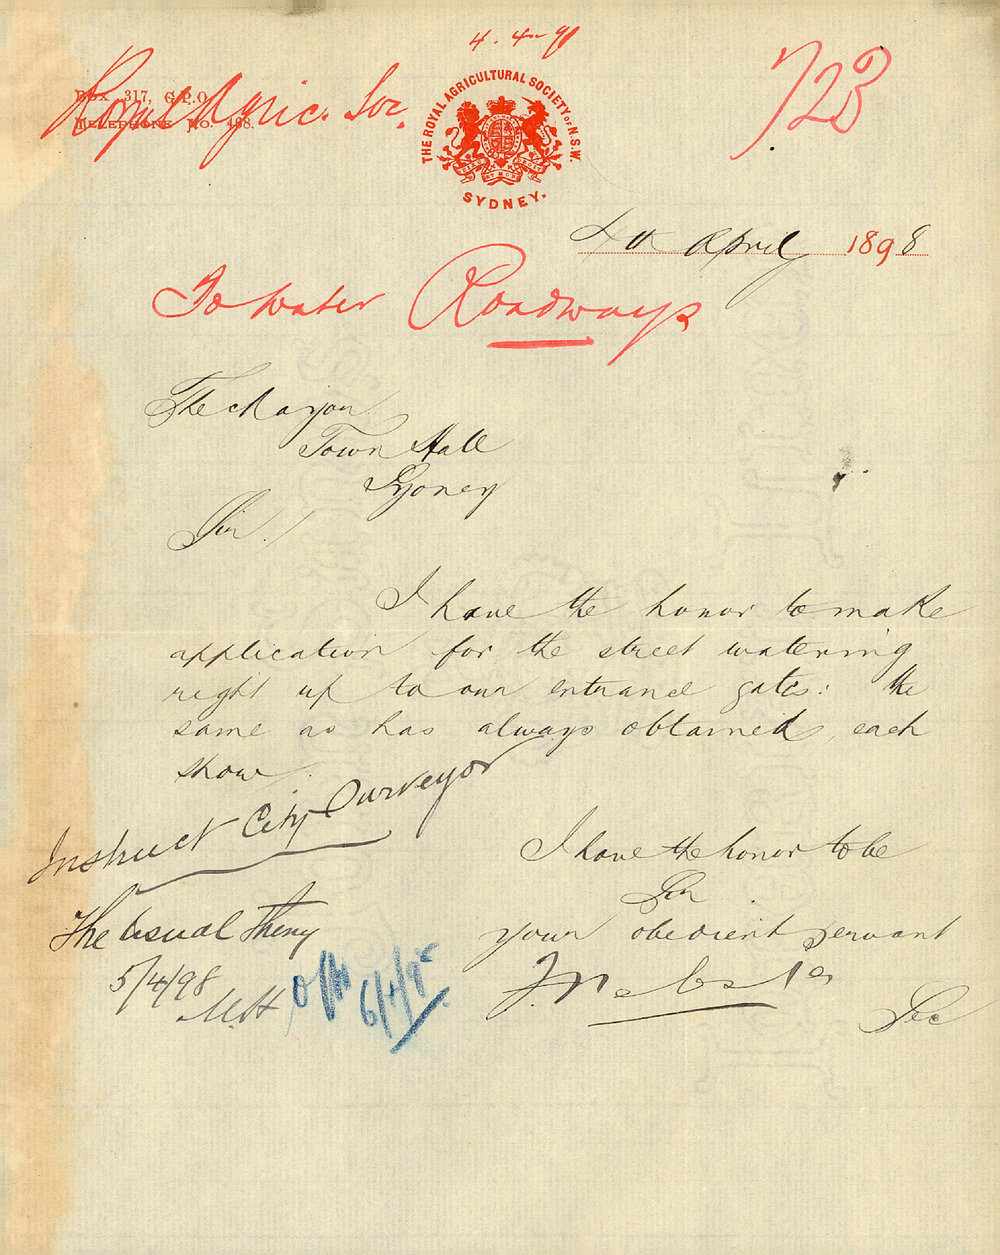 4.4.98
Royal Agric. Soc.
723
BOX 317, G.P.O.
TELEPHONE NO. 498.
THE ROYAL AGRICULTURAL SOCIETY OF N.S.W.
DIEU ET MON DROIT
SYDNEY.
4th April 1898
To water Roadways
The Mayor
Town Hall
Sydney
Sir /
I have the honor to make
application for the street watering
right up to our entrance gates: the
same as has always obtained, each
show.
Instruct City Surveyor
I have the honor to be
Sir
The usual thing
your obedient servant
5/4/98
M.H
6/4/98
F Webster
Sec